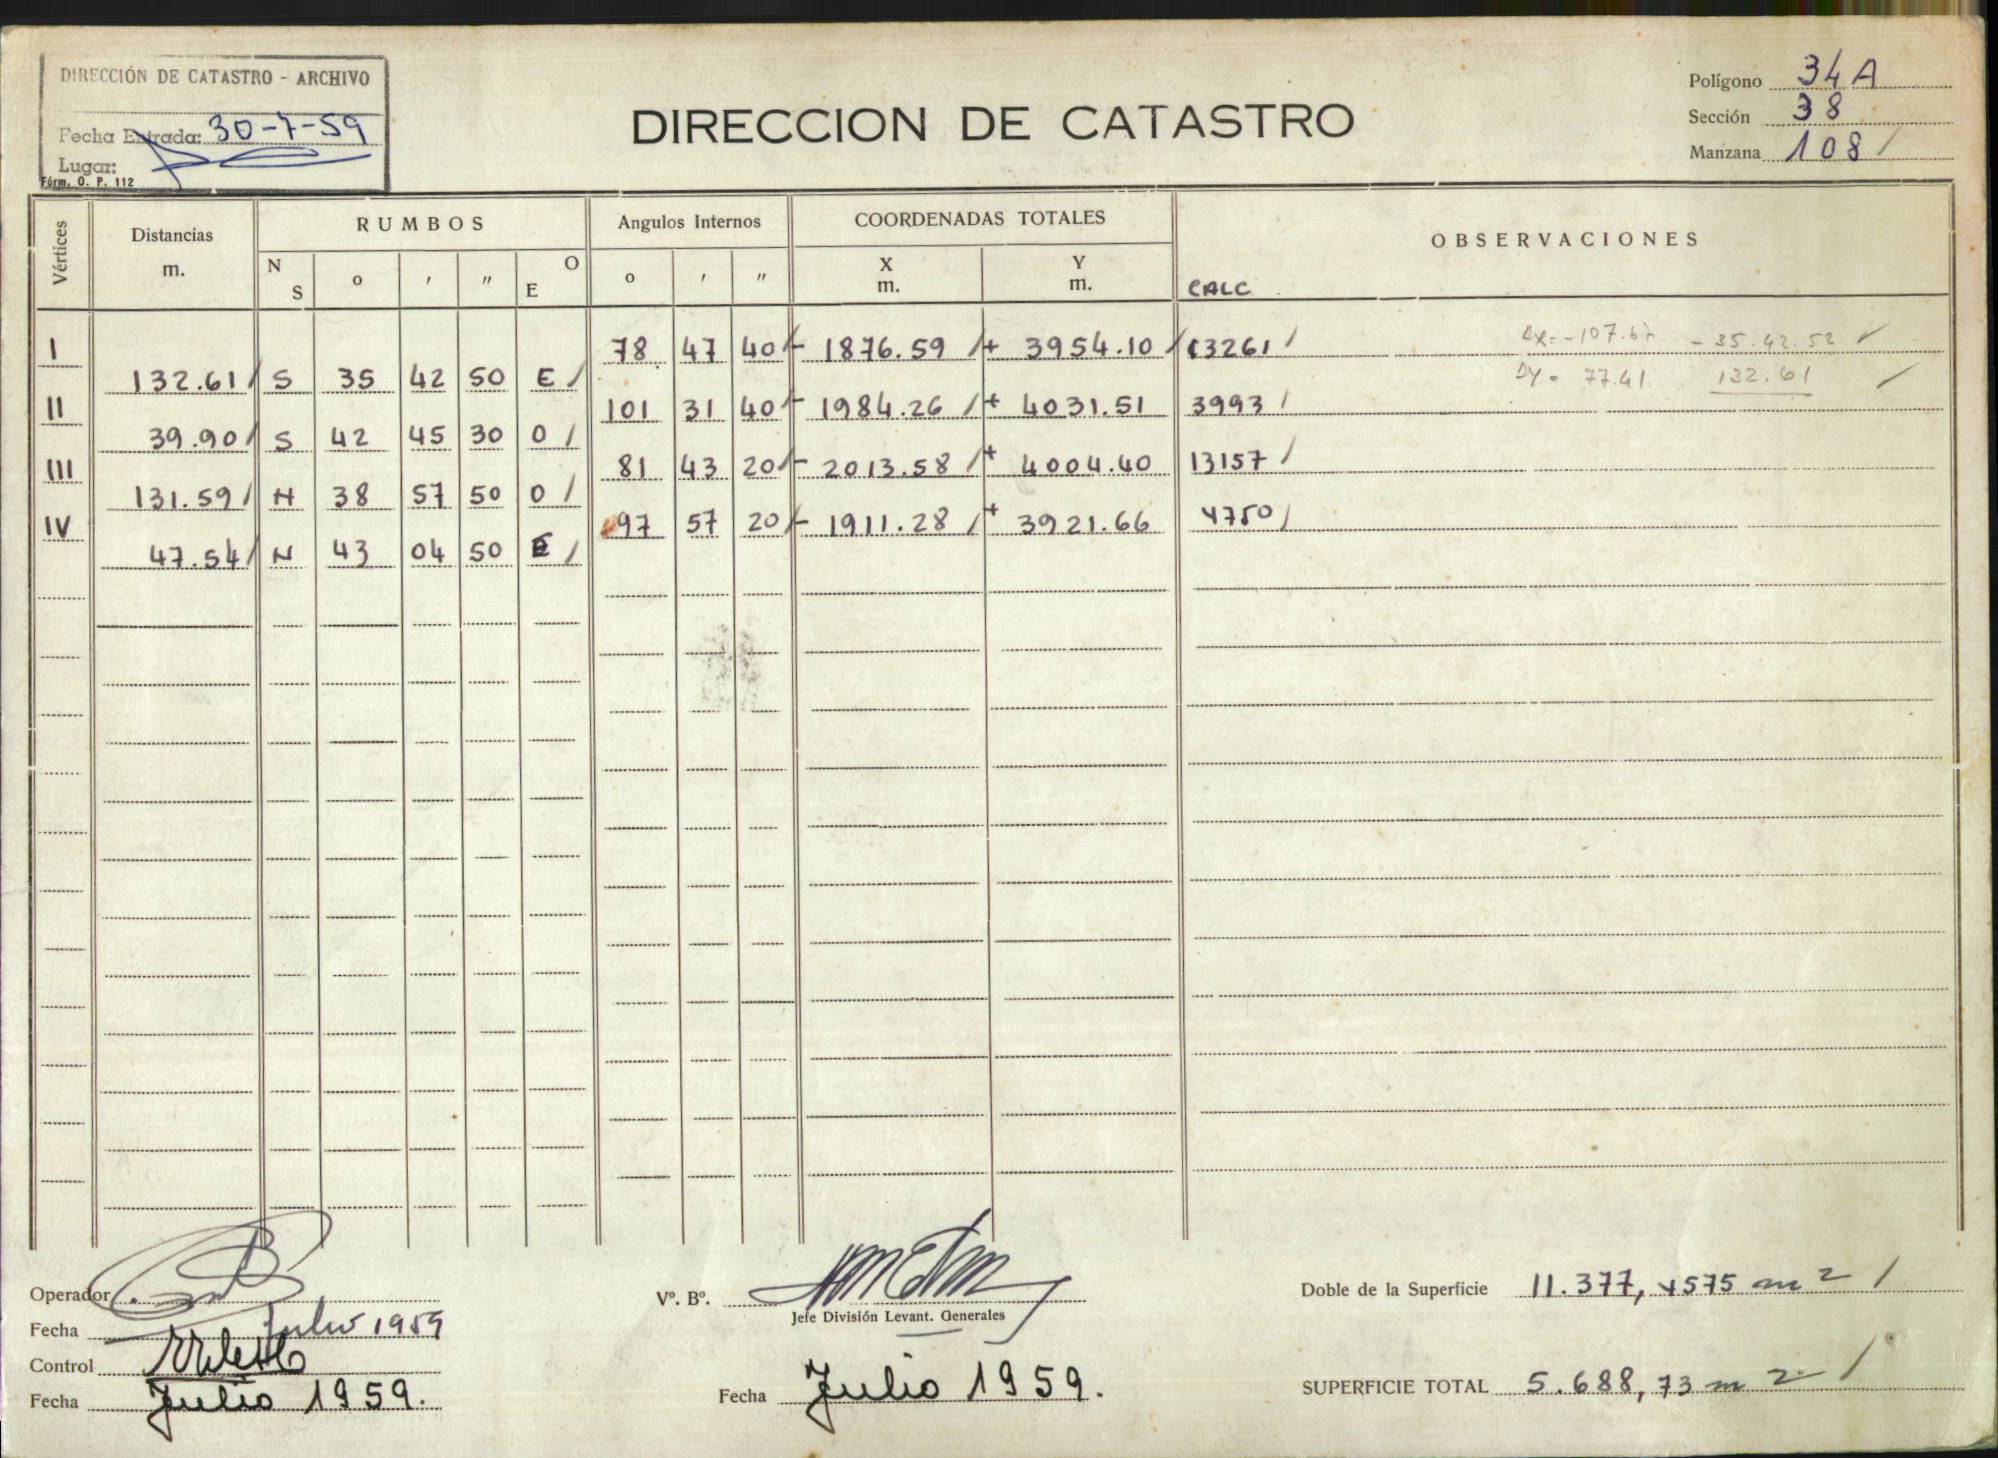 DIRECCIÓN DE CATASTRO - ARCHIVO
Fecha Entrada: 30-7-59
Lugar:
Fórm. O. P. 112
DIRECCION DE CATASTRO
Polígono 34A
Sección 38
Manzana 108 /
Vértices
Distancias
m.
RUMBOS
N
S
o
'
"
O
E
Angulos Internos
o
'
"
COORDENADAS TOTALES
X
m.
Y
m.
OBSERVACIONES
CALC
I 78 47 40 / - 1876.59 / + 3954.10 / 13261 / Δx = -107.67 - 35.42.52 ✓
132.61 / S 35 42 50 E / Δy = 77.41 132.61 /
II 101 31 40 / - 1984.26 / + 4031.51 3993 /
39.90 / S 42 45 30 O /
III 81 43 20 / - 2013.58 / + 4004.40 13157 /
131.59 / N 38 57 50 O /
IV 97 57 20 / - 1911.28 / + 3921.66 4750 /
47.54 / N 43 04 50 E /
Operador
Fecha Julio 1959
Control
Fecha Julio 1959.
Vº. Bº.
Jefe División Levant. Generales
Fecha Julio 1959.
Doble de la Superficie 11.377,4575 m2 /
SUPERFICIE TOTAL 5.688,73 m2 /